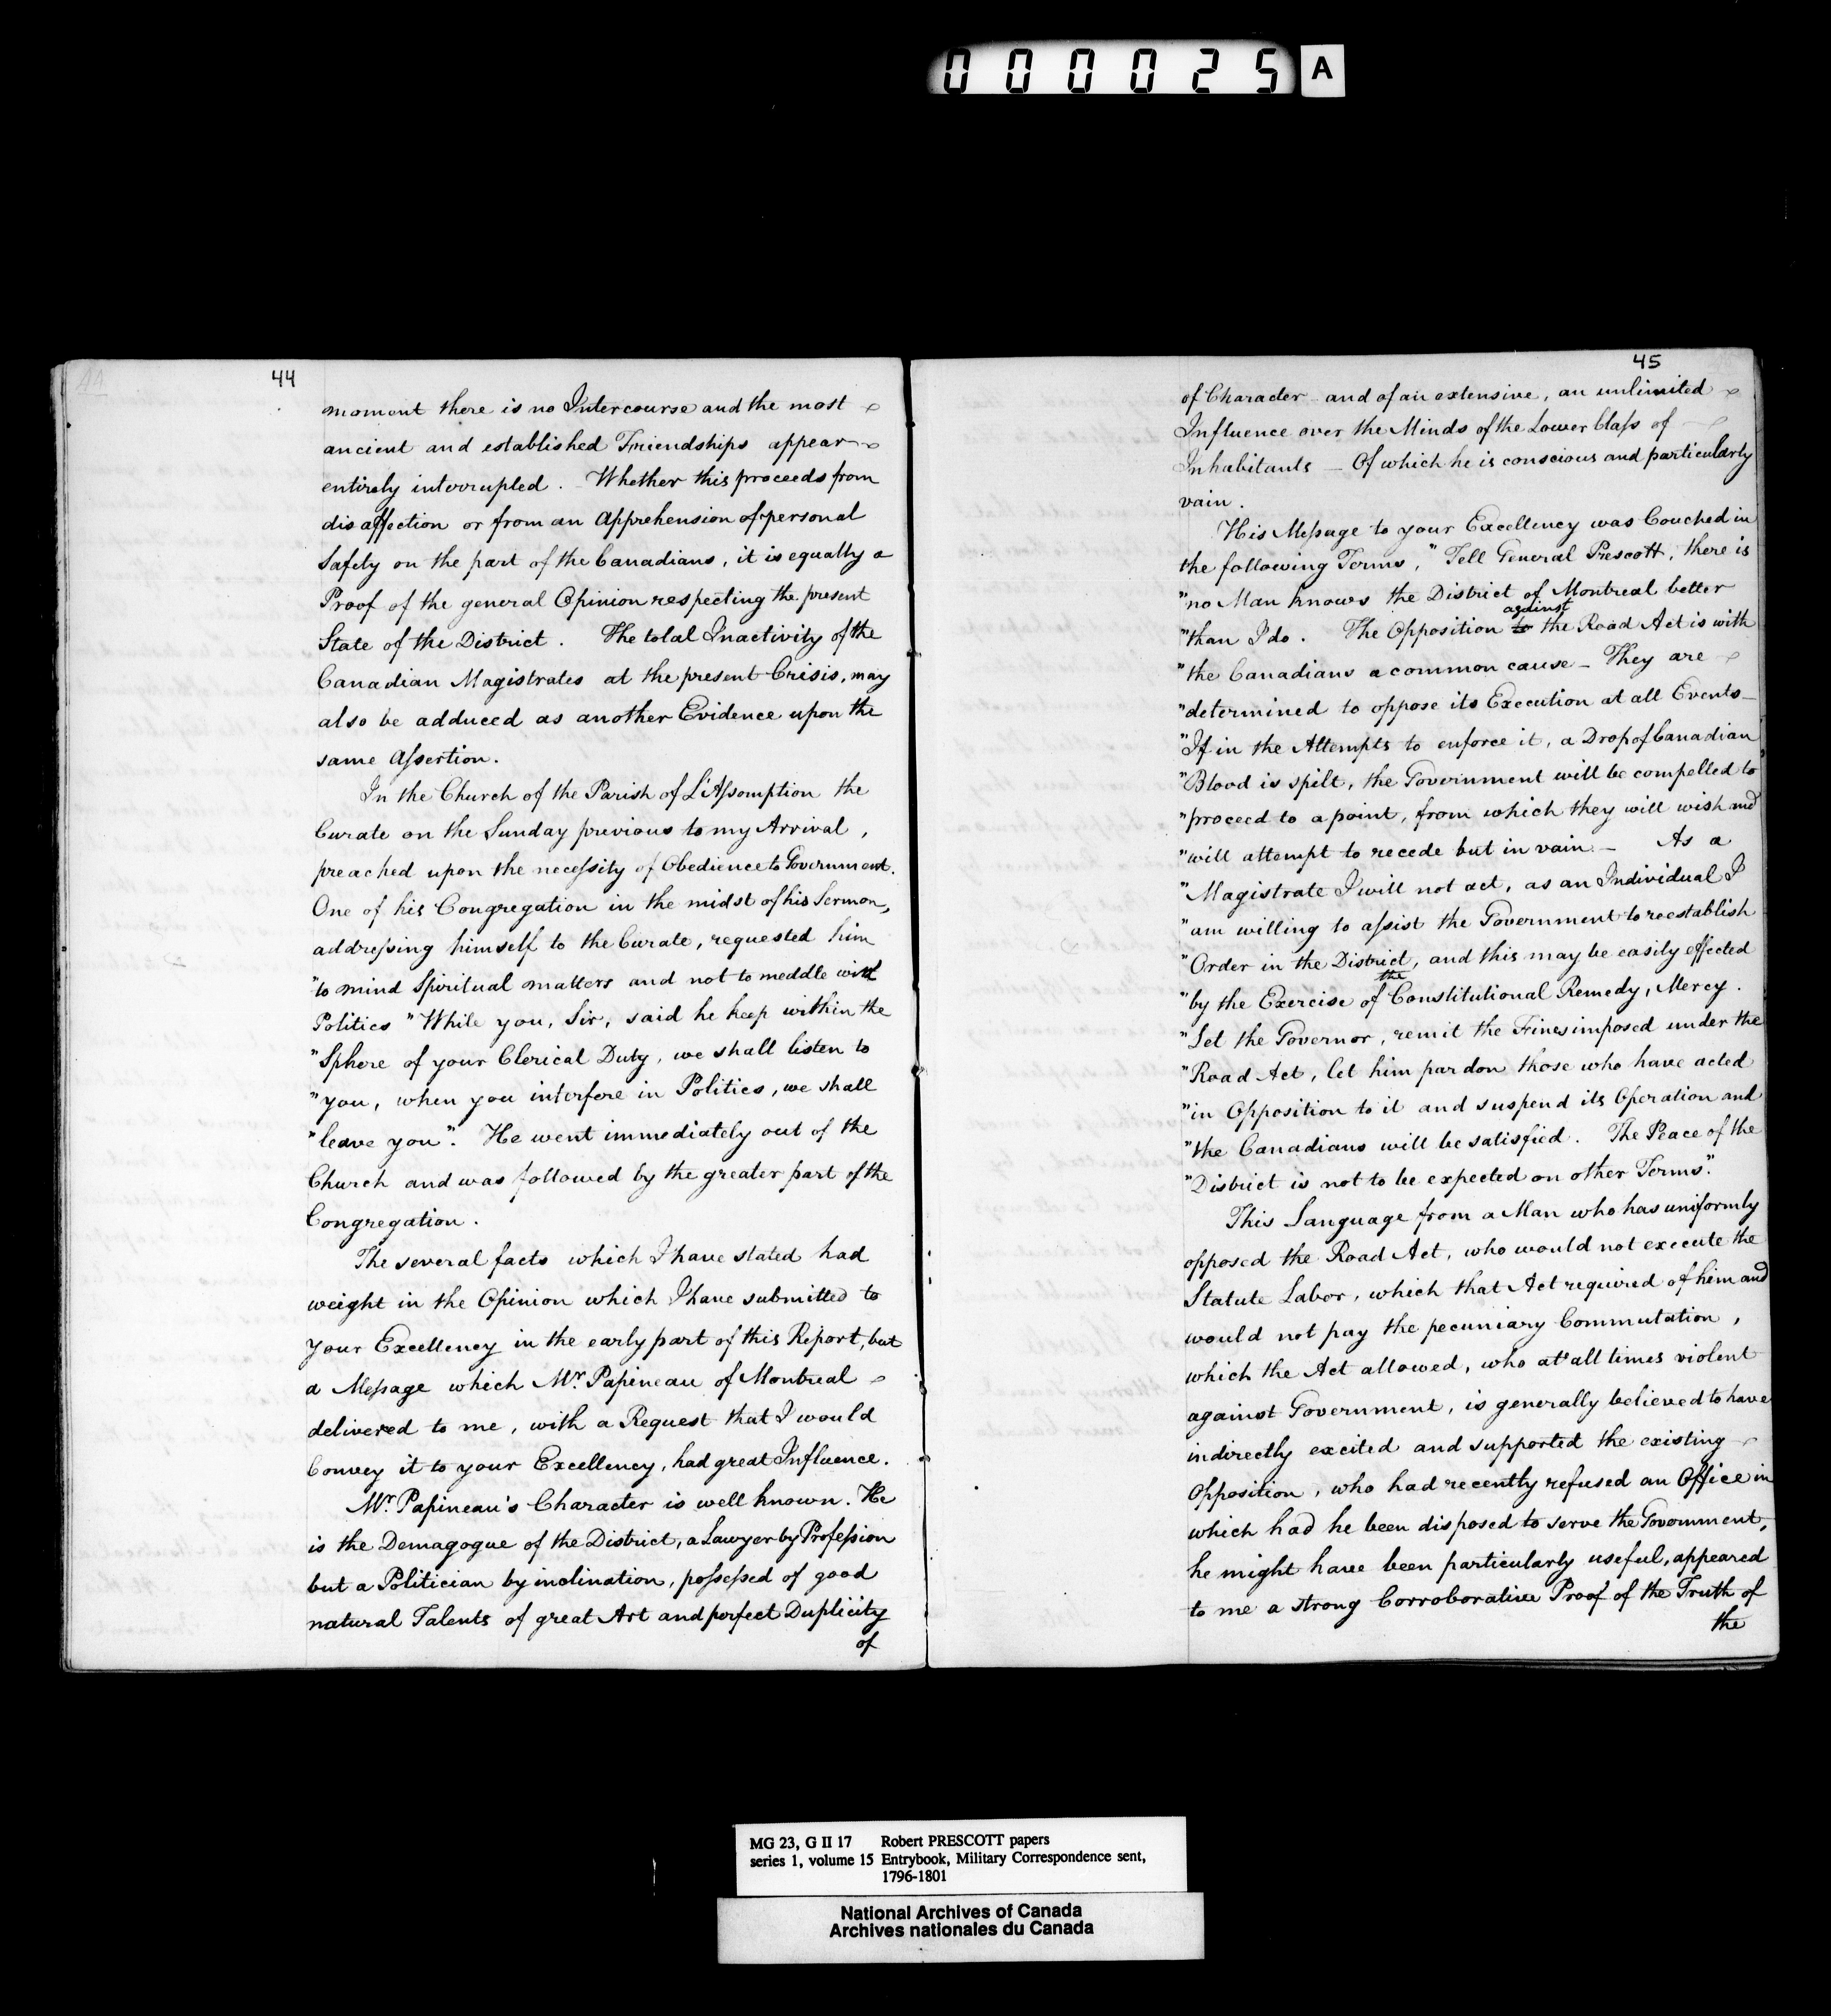 000025 A
44
moment there is no Intercourse and the most
ancient and established Friendships appear
entirely interrupted. Whether this proceeds from
disaffection or from an Apprehension of personal
Safety on the part of the Canadians, it is equally a
Proof of the general Opinion respecting the present
State of the District. The total Inactivity of the
Canadian Magistrates at the present Crisis, may
also be adduced as another Evidence upon the
same Assertion.
In the Church of the Parish of L'Assomption the
Curate on the Sunday previous to my Arrival,
preached upon the necessity of Obedience to Government.
One of his Congregation in the midst of his Sermon,
addressing himself to the Curate, requested him
"to mind Spiritual matters and not to meddle with
Politics "While you, Sir, said he keep within the
"Sphere of your Clerical Duty, we shall listen to
"you, when you interfere in Politics, we shall
"leave you". He went immediately out of the
Church and was followed by the greater part of the
Congregation.
The several facts which I have stated had
weight in the Opinion which I have submitted to
your Excellency in the early part of this Report, but
a Message which Mr. Papineau of Montreal
delivered to me, with a Request that I would
Convey it to your Excellency, had great Influence.
Mr. Papineau's Character is well known. He
is the Demagogue of the District, a Lawyer by Profession
but a Politician by inclination, possessed of good
natural Talents of great Art and perfect Duplicity
of
45
of Character – and of an extensive, an unlimited
Influence over the Minds of the Lower Class of
Inhabitants – Of which he is conscious and particularly
vain.
His Message to your Excellency was Couched in
the following Terms, "Tell General Prescott, there is
"no Man knows the District of Montreal better
"than I do. The Opposition to against the Road Act is with
"the Canadians a common cause – They are
"determined to oppose its Execution at all Events –
"If in the Attempts to enforce it, a Drop of Canadian
"Blood is spilt, the Government will be compelled to
"proceed to a point, from which they will wish and
"will attempt to recede but in vain – As a
"Magistrate I will not act, as an Individual I
"am willing to assist the Government to reestablish
"Order in the District, and this may be easily effected
"by the Exercise of the Constitutional Remedy, Mercy.
"Let the Governor, remit the Fines imposed under the
"Road Act, let him pardon those who have acted
"in Opposition to it and suspend its Operation and
"the Canadians will be satisfied. The Peace of the
"District is not to be expected on other Terms".
This Language from a Man who has uniformly
opposed the Road Act, who would not execute the
Statute Labor, which that Act required of him and
would not pay the pecuniary Commutation,
which the Act allowed, who at all times violent
against Government, is generally believed to have
indirectly excited and supported the existing
Opposition, who had recently refused an Office in
which had he been disposed to serve the Government,
he might have been particularly useful, appeared
to me a strong Corroborative Proof of the Truth of
the
MG 23, G II 17 Robert PRESCOTT papers
series 1, volume 15 Entrybook, Military Correspondence sent,
1796-1801
National Archives of Canada
Archives nationales du Canada